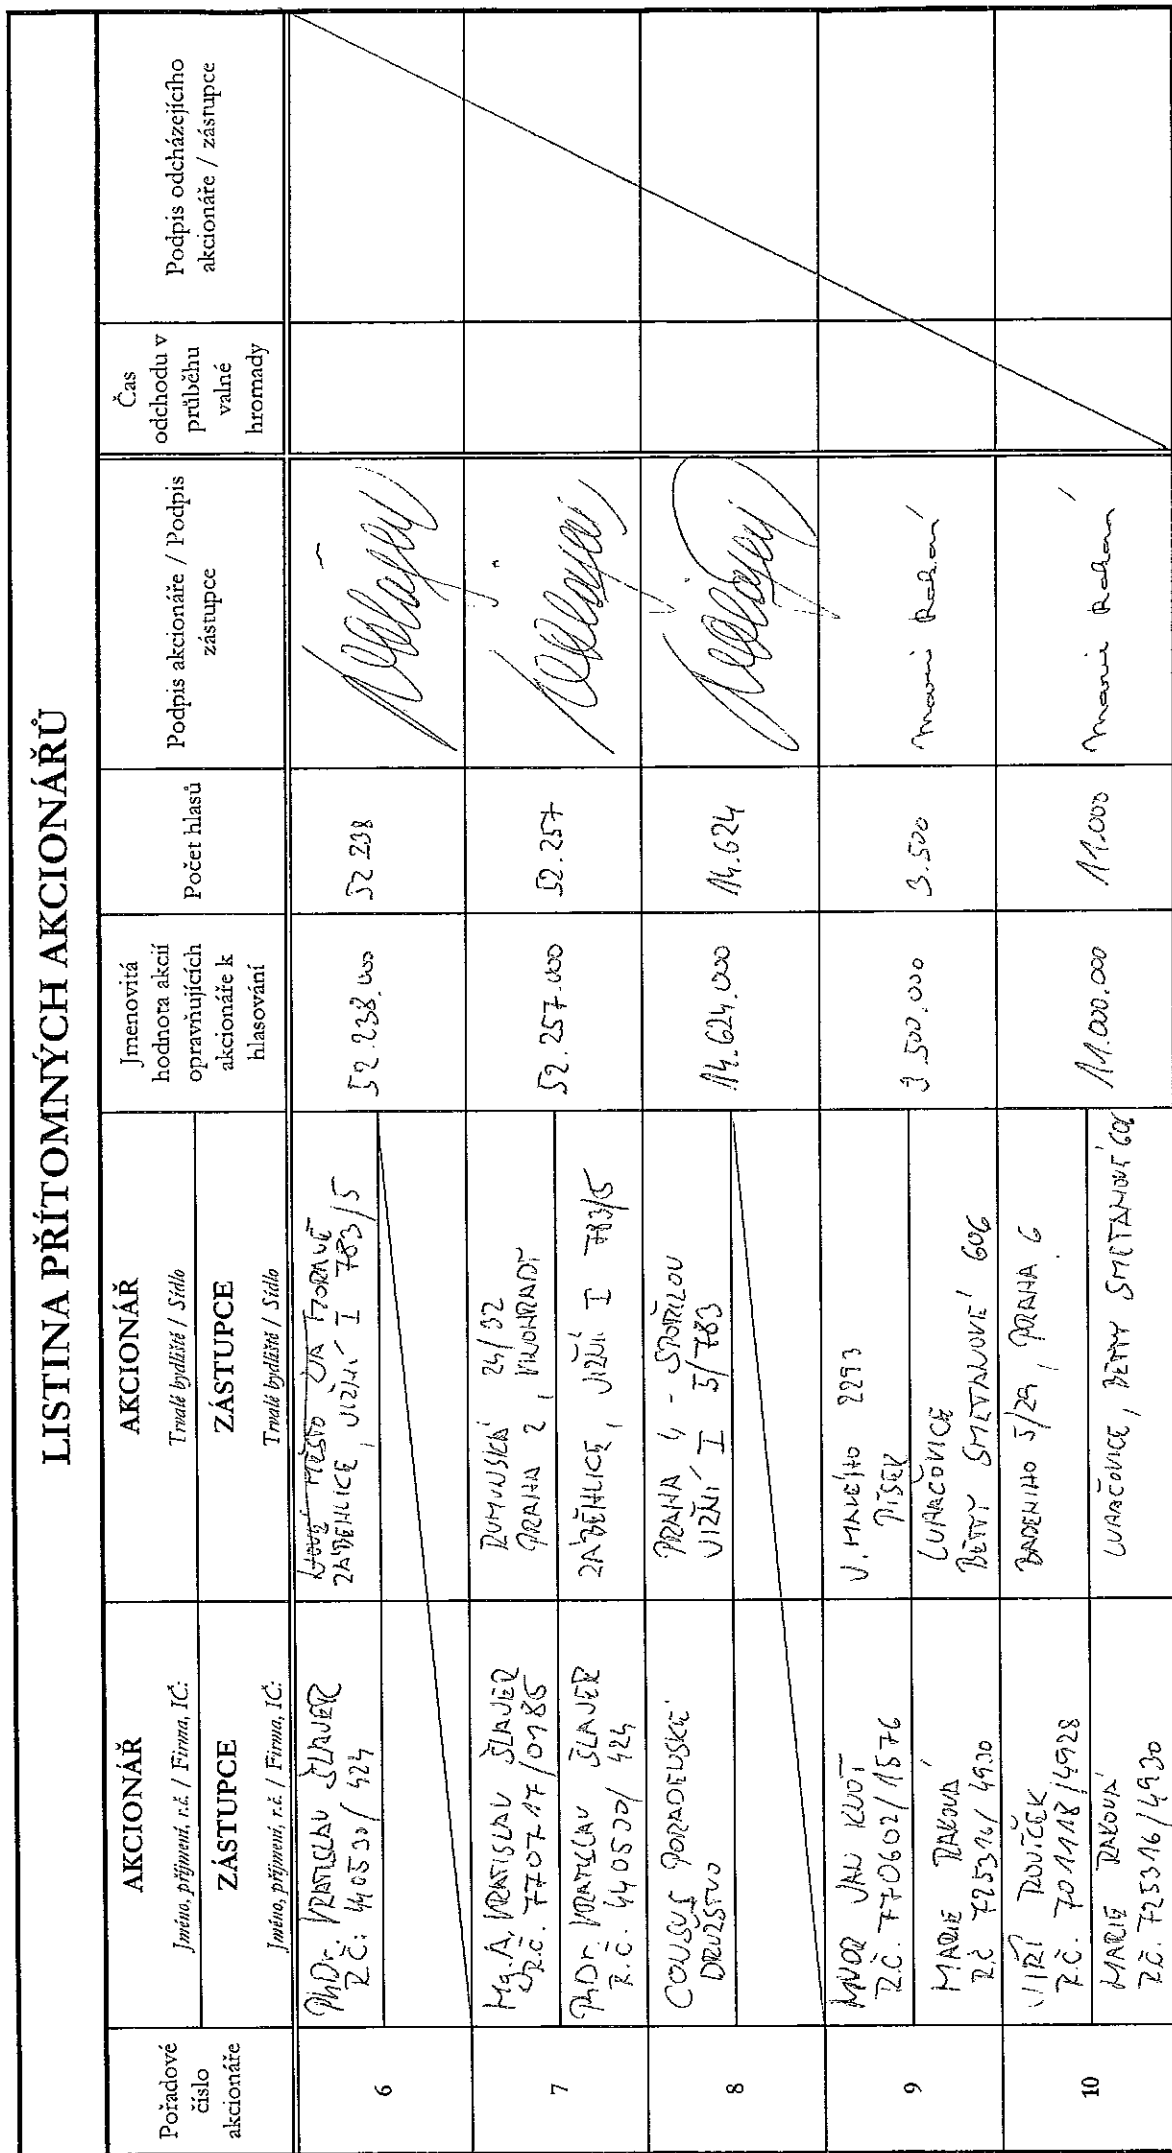 LISTINA PŘÍTOMNÝCH AKCIONÁŘŮ
Pořadové
číslo
akcionáře
AKCIONÁŘ
Jméno, příjmení, r.č. / Firma, IČ:
ZÁSTUPCE
Jméno, příjmení, r.č. / Firma, IČ:
AKCIONÁŘ
Trvalé bydliště / Sídlo
ZÁSTUPCE
Trvalé bydliště / Sídlo
Jmenovitá
hodnota akcií
opravňujících
akcionáře k
hlasování
Počet hlasů
Podpis akcionáře / Podpis
zástupce
Čas
odchodu v
průběhu
valné
hromady
Podpis odcházejícího
akcionáře / zástupce
6
PhDr. VRATISLAV ŠLAJER
R.Č: 440530/424
ZÁBĚHLICE, JIŽNÍ I 783/5
52.238.000
52 238
7
Mg.A. VRATISLAV ŠLAJER
R.Č. 770717/0185
RUMUNSKÁ 24/32
PRAHA 2, VINOHRADY
PhDr. VRATISLAV ŠLAJER
R.Č. 440530/424
ZÁBĚHLICE, JIŽNÍ I 783/5
52.257.000
52.257
8
CONSUS PORADENSKÉ
DRUŽSTVO
PRAHA 4 - SPOŘILOV
JIŽNÍ I 5/783
14.624.000
14.624
9
JAN KNOT
R.Č. 770602/1576
V. MALÉHO 2293
PÍSEK
MARIE RAKOVÁ
R.Č 725316/4930
LUHAČOVICE
BETTY SMETANOVÉ 606
3.500.000
3.500
Marie Raková
10
JIŘÍ ROUČEK
R.Č. 701118/4928
BADENIHO 5/29, PRAHA 6
MARIE RAKOVÁ
R.Č. 725316/4930
LUHAČOVICE, BETTY SMETANOVÉ 606
11.000.000
11.000
Marie Raková